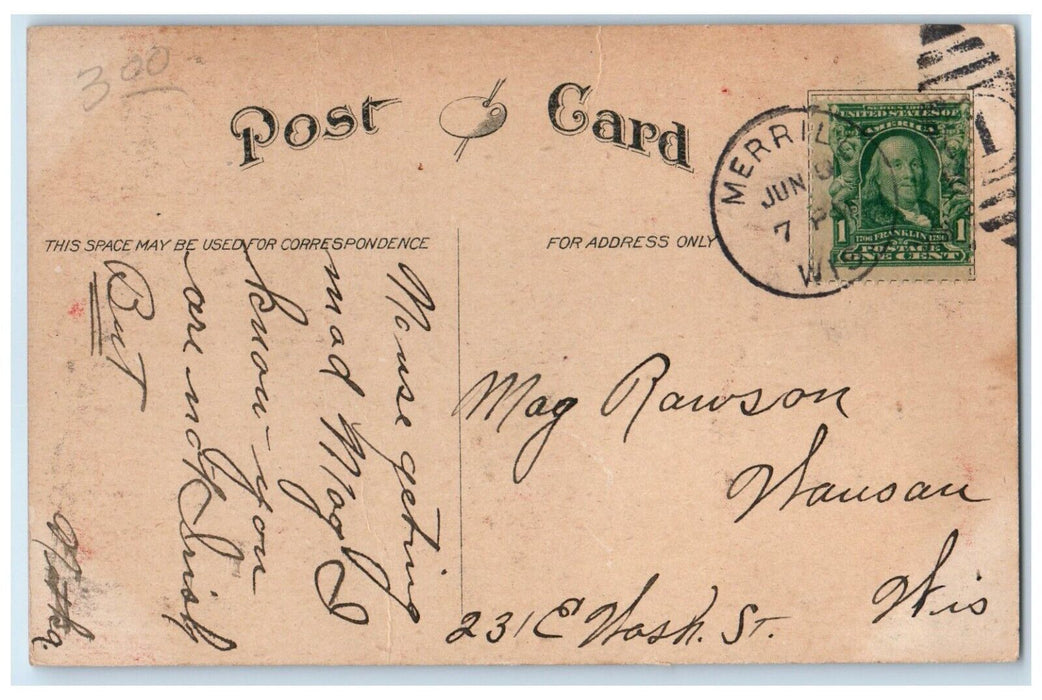 3 00
Post Card
MERRILL
JUN
7 P
WIS
1
SERIES 1902
UNITED STATES OF
AMERICA
1706 FRANKLIN 1790
1 POSTAGE 1
ONE CENT
THIS SPACE MAY BE USED FOR CORRESPONDENCE
FOR ADDRESS ONLY
No use geting
mad Mag I
know you
are not Irish
But
Mag Rawson
Wausau
Wis
231 E Wash. St.